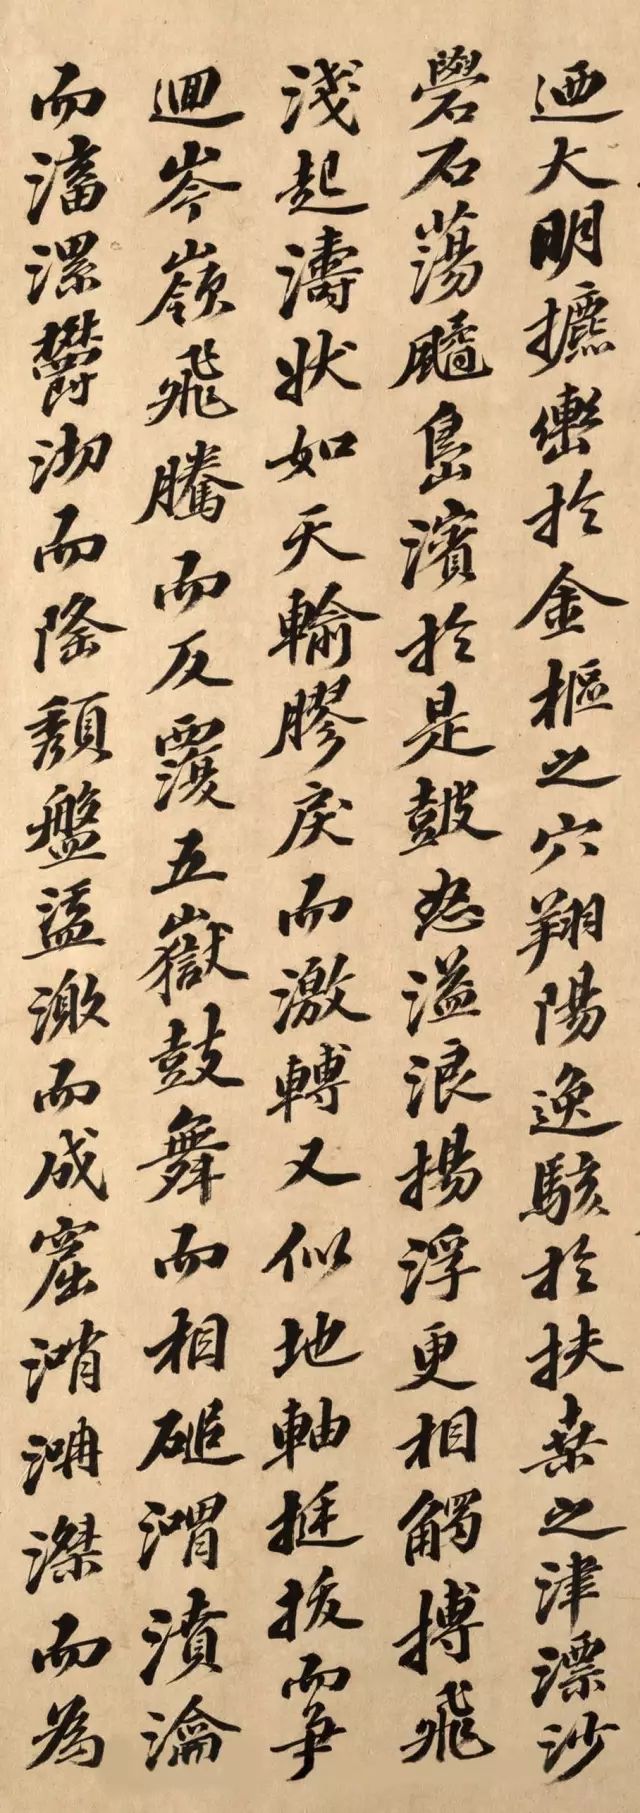 迺大明摭轡於金樞之穴翔陽逸駭於扶桑之津漂沙
礐石蕩䬍島濱於是皷怒溢浪揚浮更相觸搏飛
淺起濤狀如天輸膠戾而激轉又似地軸挺拔而爭
迴岑嶺飛騰而反覆五嶽鼓舞而相磓渭濆瀹
而滀漯鬱沏而隆頹盤盓激而成窟滐而為